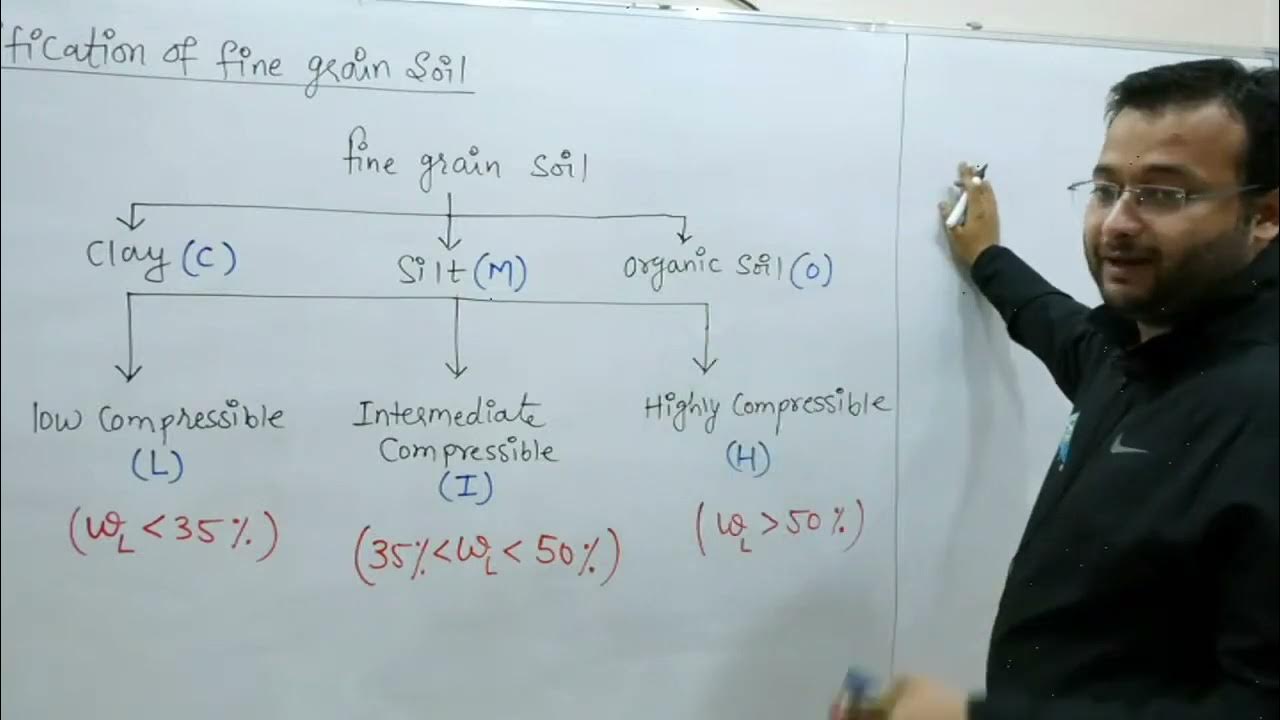 ification of fine grain Soil
fine grain Soil
Clay (C)
Silt (M)
Organic Soil (O)
low Compressible
(L)
(WL < 35%)
Intermediate
Compressible
(I)
(35% < WL < 50%)
Highly Compressible
(H)
(WL > 50%)